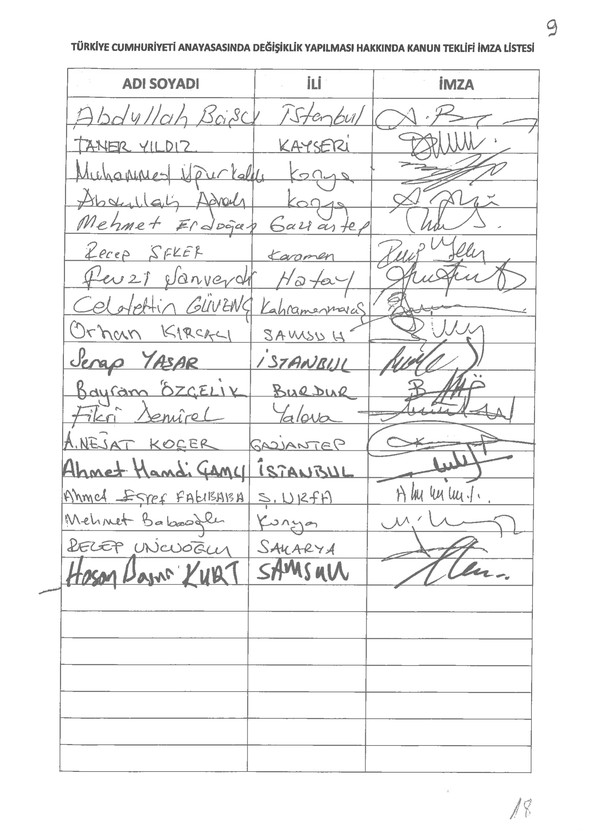 9
TÜRKİYE CUMHURİYETİ ANAYASASINDA DEĞİŞİKLİK YAPILMASI HAKKINDA KANUN TEKLİFİ İMZA LİSTESİ
ADI SOYADI İLİ İMZA
Abdullah Başcı İstanbul
TANER YILDIZ KAYSERİ
Muhammed Uğur Kaleli Konya
Abdullah Ağralı Konya
Mehmet Erdoğan Gaziantep
Recep ŞEKER Karaman
Fevzi Şanverdi Hatay
Celalettin GÜVENÇ Kahramanmaraş
Orhan KIRCALI SAMSUN
Serap YAŞAR İSTANBUL
Bayram ÖZÇELİK BURDUR
Fikri Demirel Yalova
A.NEJAT KOÇER GAZİANTEP
Ahmet Hamdi ÇAMLI İSTANBUL
Ahmet Eşref FAKIBABA Ş.URFA
Mehmet Babaoğlu Konya
RECEP UNCUOĞLU SAKARYA
Hasan Basri KURT SAMSUN
18